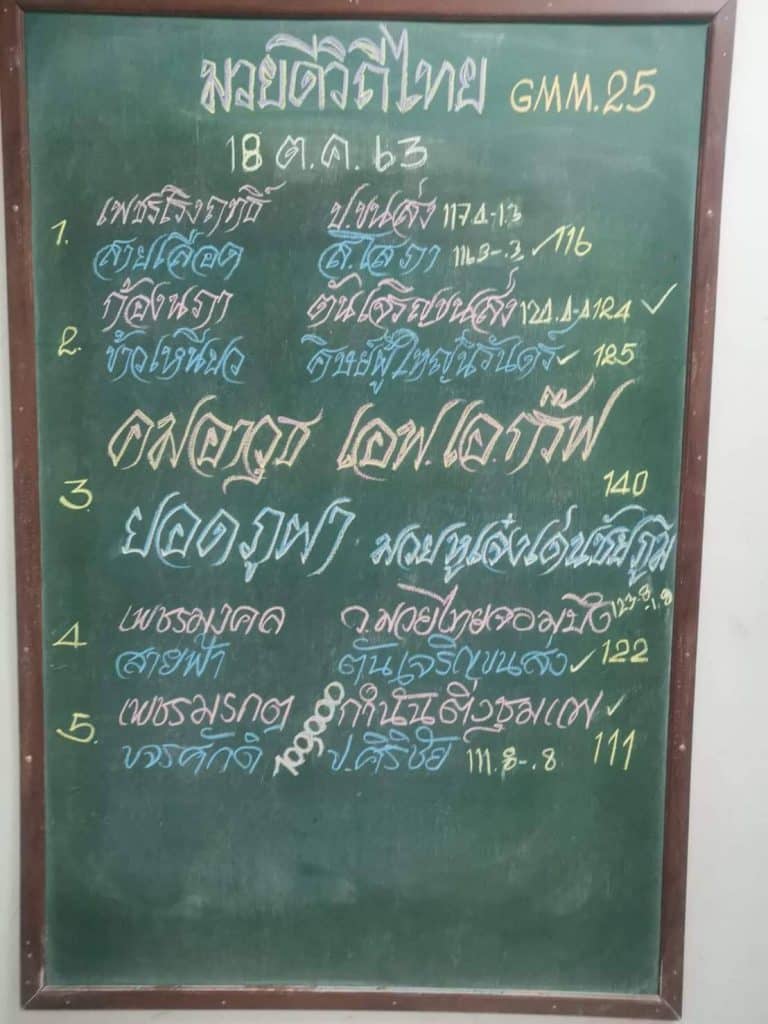 มวยดีวิถีไทย GMM.25
18 ต.ค. 63
1. เพชรโรงฤทธิ์ ป.ขนส่ง 117.4-1.3
สายเลือด ส.โสภา 116.3-.3 ✓116
2. ก้องนภา ตันเจริญขนส่ง 124.4-.4 124 ✓
ข้าวเหนียว ศิษย์ผู้ใหญ่นิรันดร์ ✓ 125
3. คมอาวุธ เอฟ.เอ.กรุ๊ฟ
140
ยอดภูผา มวยหูเส่งเด่นชัยภูมิ
4 เพชรมงคล ว.มวยไทยจอมบึง 123.8-1.8
สายฟ้า ตันเจริญขนส่ง ✓ 122
5. เพชรมรกต กำนันติ่งชุมแพ ✓
100,000
ขจรศักดิ์ ป.ศิริชัย 111.8-.8 111